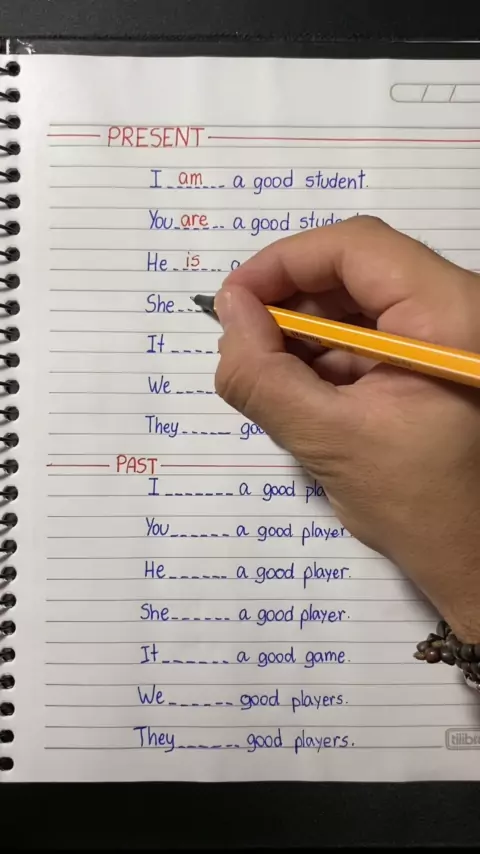 PRESENT
I am a good student.
You are a good
He is
She
It
We
They
PAST
I _______ a good
You ______ a good player.
He ______ a good player.
She ______ a good player.
It _______ a good game.
We ______ good players.
They ______ good players.